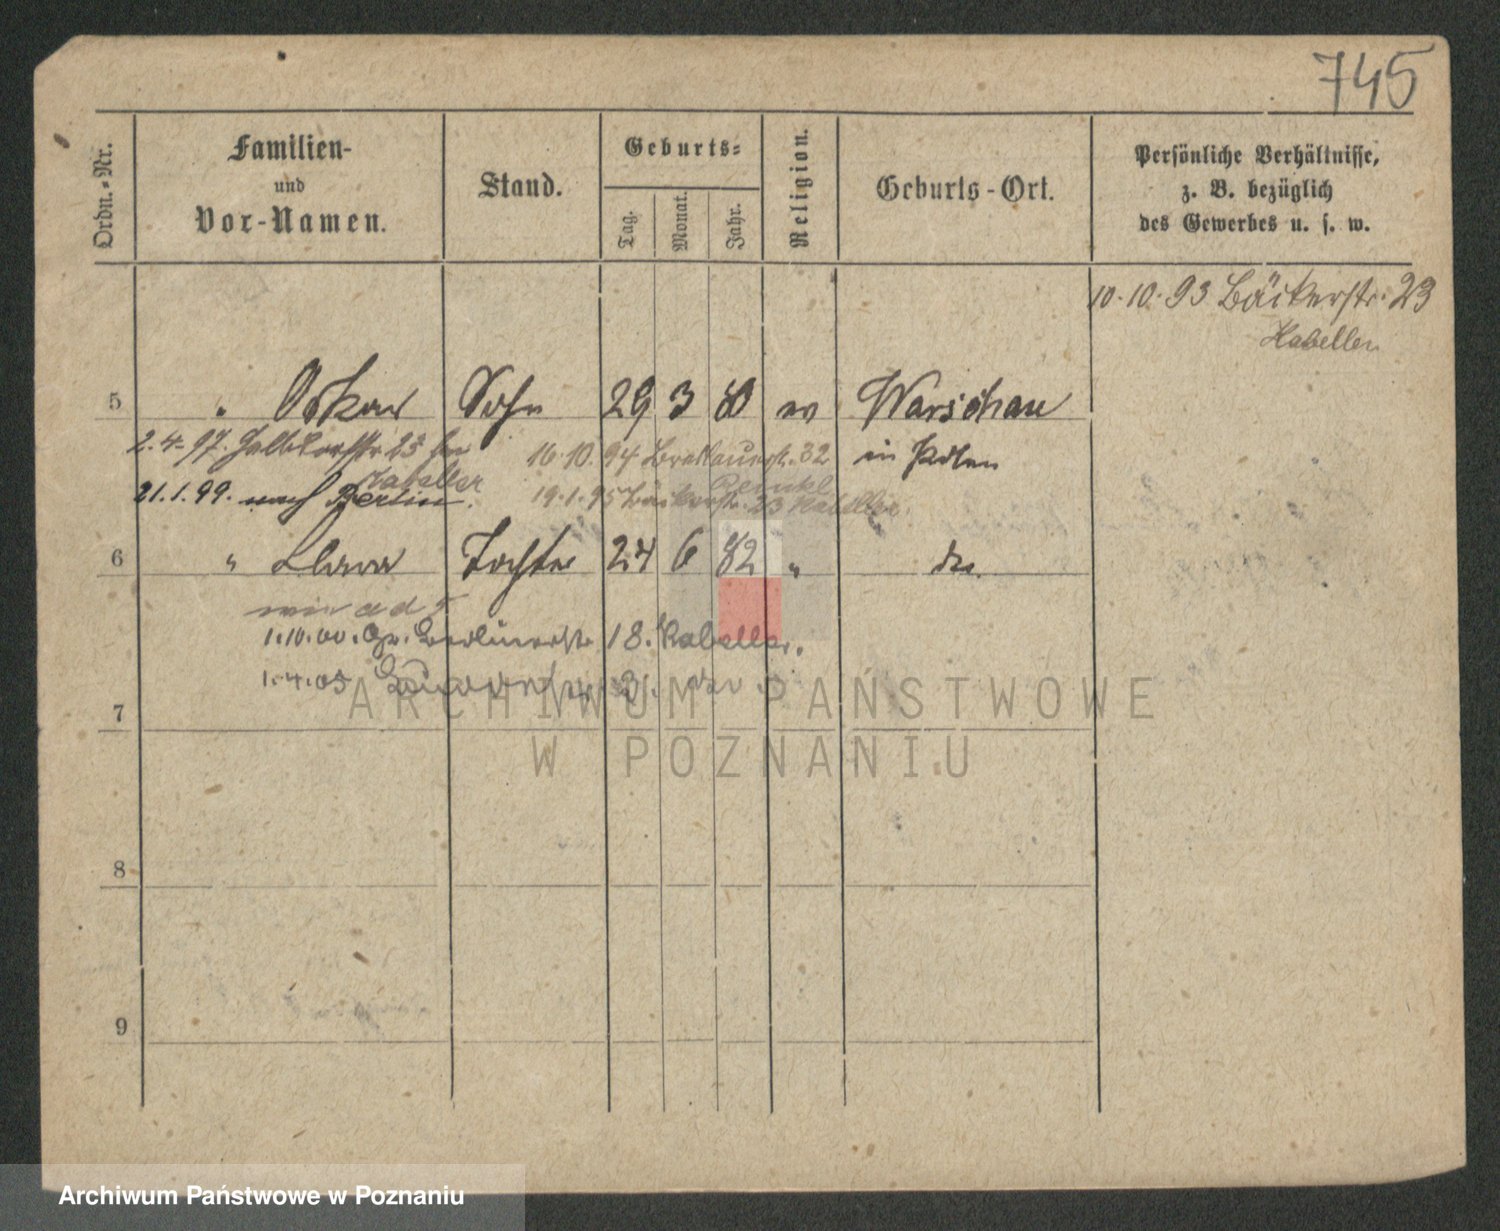 745
Ordn.-Nr.
Familien-
und
Vor-Namen.
Stand.
Geburts-
Tag.
Monat.
Jahr.
Religion.
Geburts-Ort.
Persönliche Verhältnisse,
z. B. bezüglich
des Gewerbes u. s. w.
10.10.93 Bäckerstr. 23
Habeller
5 " Oskar Sohn 29 3 80 ev Warschau
in Polen
2.4.97. Halbdorfstr 23 bei
Habeller
16.10.94 Breslauerstr. 32
21.1.99. nach Berlin.
19.1.95 Bäckerstr. 23 Habeller
6 " Clara Tochter 24 6 82 " do.
wie ad 5
1.10.00. Gr. Berlinerstr. 18. Habeller.
1.4.05
7
8
9
ARCHIWUM PAŃSTWOWE
W POZNANIU
Archiwum Państwowe w Poznaniu